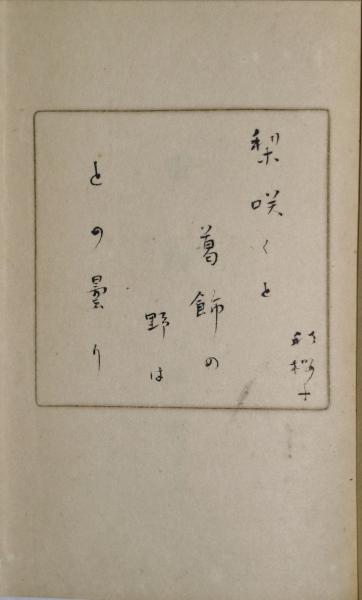 梨咲くと
葛飾の
野は
との曇り
秋桜子